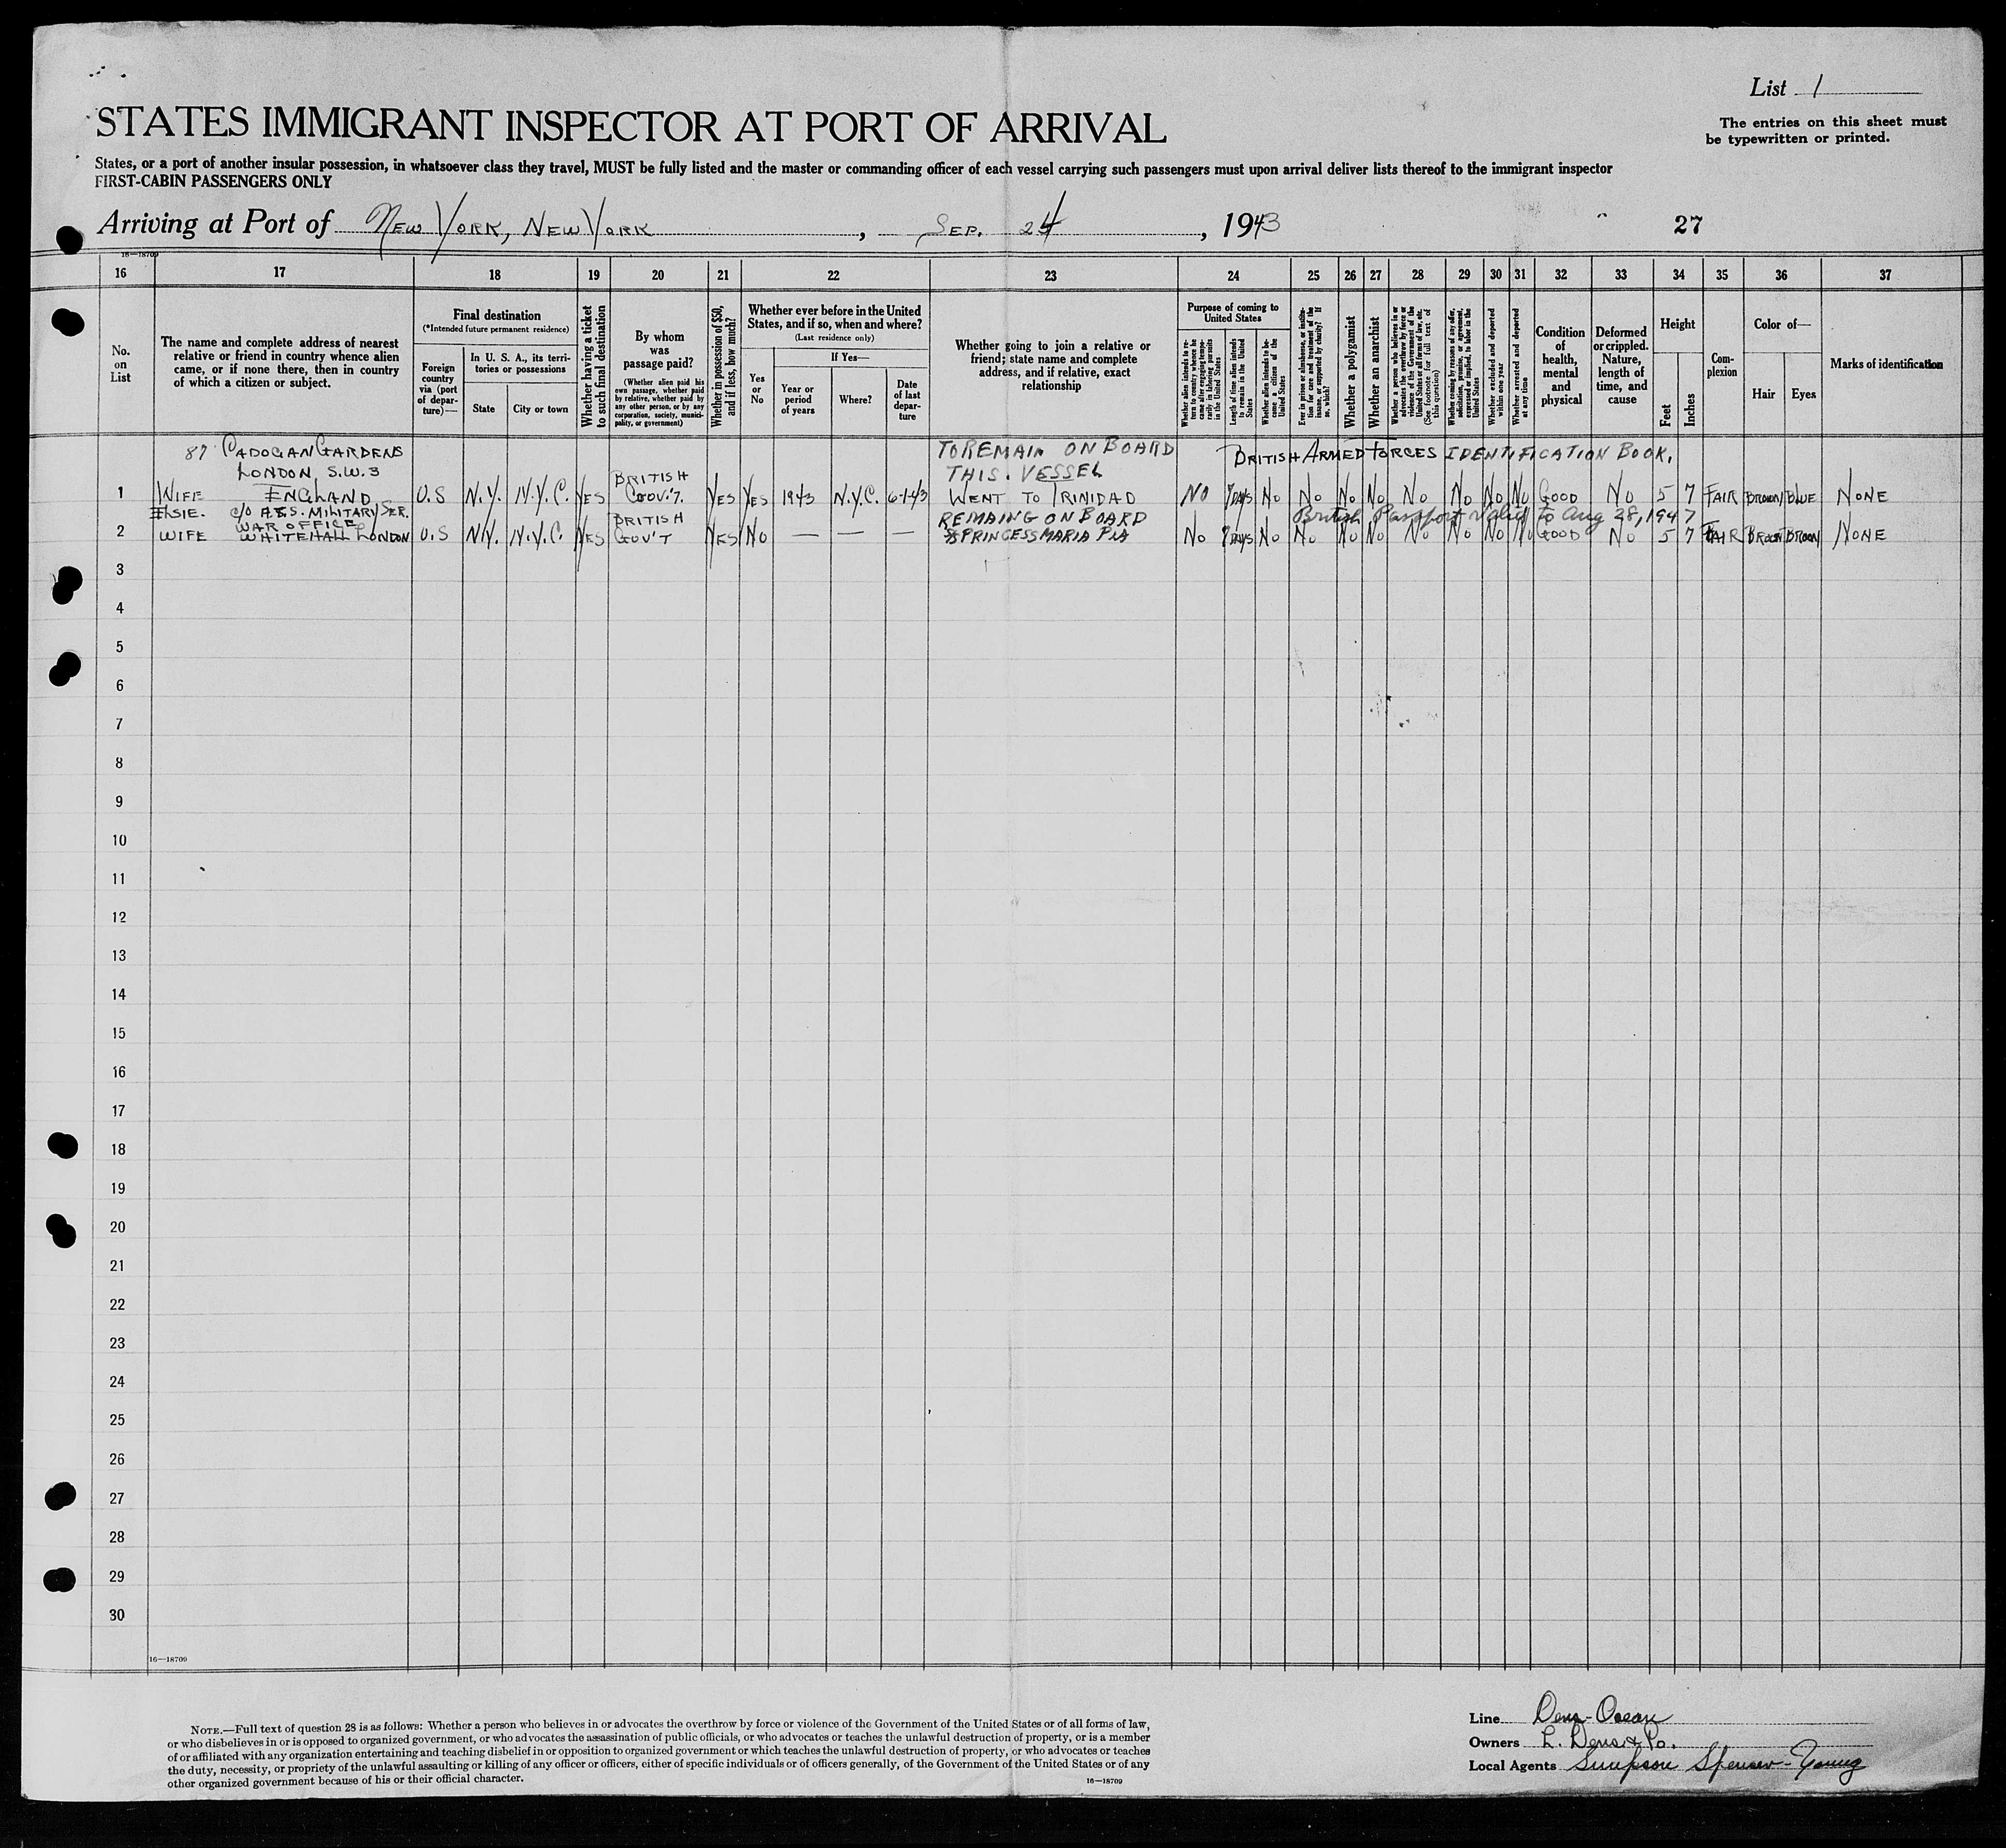 List 1
The entries on this sheet must
be typewritten or printed.
STATES IMMIGRANT INSPECTOR AT PORT OF ARRIVAL
States, or a port of another insular possession, in whatsoever class they travel, MUST be fully listed and the master or commanding officer of each vessel carrying such passengers must upon arrival deliver lists thereof to the immigrant inspector
FIRST-CABIN PASSENGERS ONLY
Arriving at Port of NEW YORK, NEW YORK, SEP. 24, 1943
27
16—18709
16 17 18 19 20 21 22 23 24 25 26 27 28 29 30 31 32 33 34 35 36 37
No. on List
The name and complete address of nearest relative or friend in country whence alien came, or if none there, then in country of which a citizen or subject.
Final destination
(*Intended future permanent residence)
Foreign country via (port of departure)—
In U. S. A., its territories or possessions
State
City or town
Whether having a ticket to such final destination
By whom was passage paid?
(Whether alien paid his own passage, whether paid by relative, whether paid by any other person, or by any corporation, society, municipality, or government)
Whether in possession of $50, and if less, how much?
Whether ever before in the United States, and if so, when and where?
(Last residence only)
Yes or No
If Yes—
Year or period of years
Where?
Date of last departure
Whether going to join a relative or friend; state name and complete address, and if relative, exact relationship
Purpose of coming to United States
Whether alien intends to return to country whence he came after engaging temporarily in laboring pursuits in the United States
Length of time alien intends to remain in the United States
Whether alien intends to become a citizen of the United States
Ever in prison or almshouse, or institution for care and treatment of the insane, or supported by charity? If so, which?
Whether a polygamist
Whether an anarchist
Whether a person who believes in or advocates the overthrow by force or violence of the Government of the United States or all forms of law, etc. (See footnote for full text of this question)
Whether coming by reasons of any offer, solicitation, promise, or agreement, expressed or implied, to labor in the United States
Whether excluded and deported within one year
Whether arrested and deported at any time
Condition of health, mental and physical
Deformed or crippled. Nature, length of time, and cause
Height
Feet
Inches
Complexion
Color of—
Hair
Eyes
Marks of identification
87 CADOGAN GARDENS TO REMAIN ON BOARD BRITISH ARMED FORCES IDENTIFICATION BOOK.
LONDON S.W.3 BRITISH THIS VESSEL
1 WIFE ENGLAND U.S N.Y. N.Y.C. YES GOV'T. YES YES 1943 N.Y.C. 6-1-43 WENT TO TRINIDAD NO 7 DAYS NO NO NO NO NO NO NO NO GOOD NO 5 7 FAIR BROWN BLUE NONE
ELSIE. C/O A&S. MILITARY SER. BRITISH REMAING ON BOARD British Passport valid to Aug 28, 1947
WAR OFFICE
2 WIFE WHITEHALL LONDON U.S N.Y. N.Y.C. YES GOV'T YES NO — — — PRINCESS MARIA PIA NO 7 DAYS NO NO NO NO NO NO NO NO GOOD NO 5 7 FAIR BROWN BROWN NONE
3
4
5
6
7
8
9
10
11
12
13
14
15
16
17
18
19
20
21
22
23
24
25
26
27
28
29
30
16—18709
NOTE.—Full text of question 28 is as follows: Whether a person who believes in or advocates the overthrow by force or violence of the Government of the United States or of all forms of law,
or who disbelieves in or is opposed to organized government, or who advocates the assassination of public officials, or who advocates or teaches the unlawful destruction of property, or is a member
of or affiliated with any organization entertaining and teaching disbelief in or opposition to organized government or which teaches the unlawful destruction of property, or who advocates or teaches
the duty, necessity, or propriety of the unlawful assaulting or killing of any officer or officers, either of specific individuals or of officers generally, of the Government of the United States or of any
other organized government because of his or their official character.
16—18709
Line Dens-Ocean
Owners L. Dens & Co.
Local Agents Simpson Spenser-Young